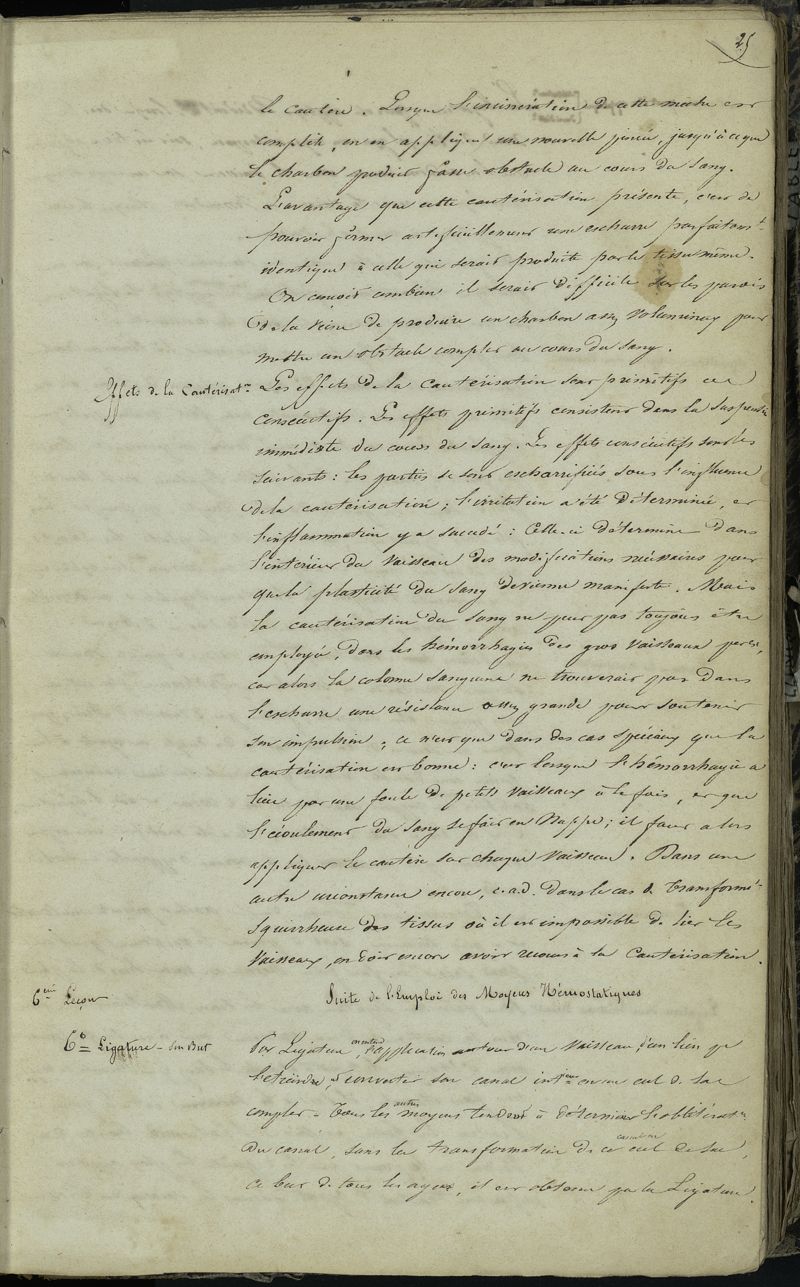 25
le cautère. Lorsque l'incinération de cette mèche est
complète, on en applique une nouvelle pincée, jusqu'à ce que
le charbon produit fasse obstacle au cours du sang.
L'avantage que cette cautérisation présente, c'est de
pouvoir former artificiellement une escharre parfaitemt.
identique à celle qui serait produite par le tissu même.
On conçoit combien il serait difficile sur les parois
de la veine de produire un charbon assez volumineux pour
mettre un obstacle complet au cours du sang.
Effets de la Cautérisatn. Les effets de la cautérisation sont primitifs et
consécutifs. Les effets primitifs consistent dans la suspension
immédiate du cours du sang. Les effets consécutifs sont les
suivants : les parties se sont escharrifiées sous l'influence
de la cautérisation ; l'irritation a été déterminée, et
l'inflammation y a succédé : Celle-ci détermine dans
l'intérieur du vaisseau des modifications nécessaires pour
que la plasticité du sang devienne manifeste. Mais
la cautérisation du sang ne peut pas toujours être
employée, dans les hémorrhagies des gros vaisseaux
car alors la colonne sanguine ne trouverait pas dans
l'escharre une résistance assez grande pour soutenir
son impulsion, ce n'est que dans des cas spéciaux que la
cautérisation est bonne : c'est lorsque l'hémorrhagie a
lieu par une foule de petits vaisseaux à la fois, et que
l'écoulement du sang se fait en nappe ; il faut alors
appliquer le cautère sur chaque vaisseau. Dans une
autre circonstance encore, c.a.d. dans le cas de transformé
squirrheuse des tissus où il est impossible de lier les
vaisseaux, on doit encore avoir recours à la Cautérisation.
6eme Leçon Suite de l'Emploi des Moyens Hémostatiques
6º Ligature - Son But Par Ligature, on entend l'application autour d'un vaisseau, d'un lien qui
l'étreindre, & convertir son canal intérieur en un cul de sac
complet - Tous les autres moyens tendent à déterminer l'oblitératn.
du canal, sans la transformation de ce canal en cul de sac,
ce but de tous les agents, il est obtenu par la Ligature.